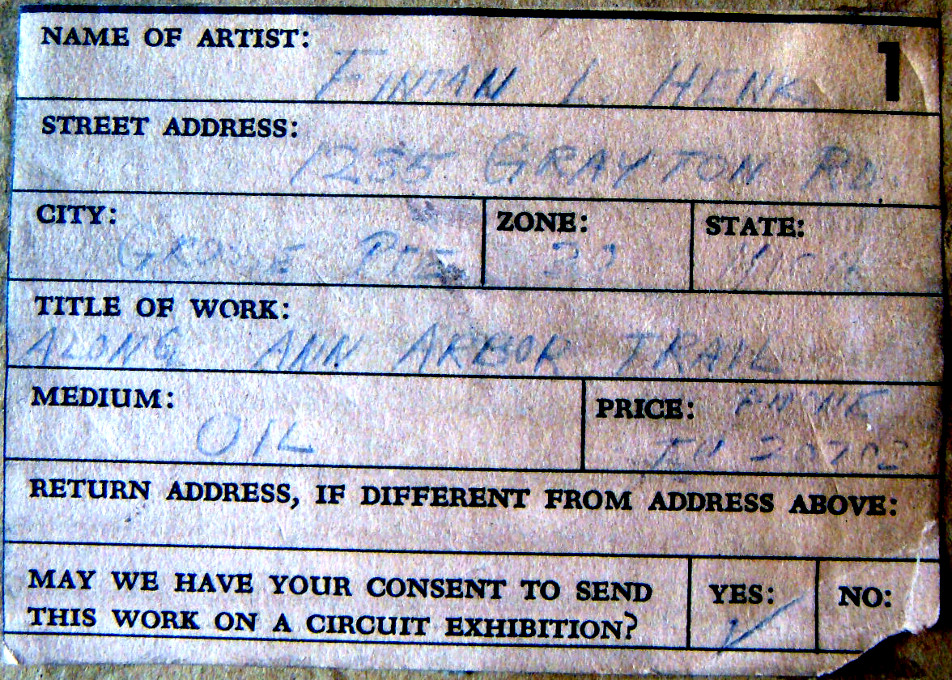 NAME OF ARTIST: 1
FINIAN L. HENK
STREET ADDRESS:
1235 GRAYTON RD.
CITY: ZONE: STATE:
GROSSE PTE 30 MICH
TITLE OF WORK:
ALONG ANN ARBOR TRAIL
MEDIUM: PRICE: PHONE
OIL
RETURN ADDRESS, IF DIFFERENT FROM ADDRESS ABOVE:
MAY WE HAVE YOUR CONSENT TO SEND YES: NO:
THIS WORK ON A CIRCUIT EXHIBITION? ✓